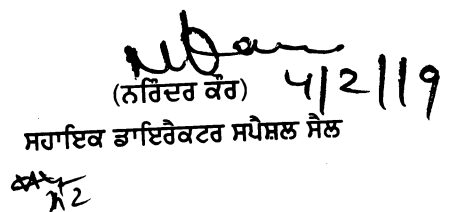 (ਨਰਿੰਦਰ ਕੌਰ) 4/2/19
ਸਹਾਇਕ ਡਾਇਰੈਕਟਰ ਸਪੈਸ਼ਲ ਸੈਲ